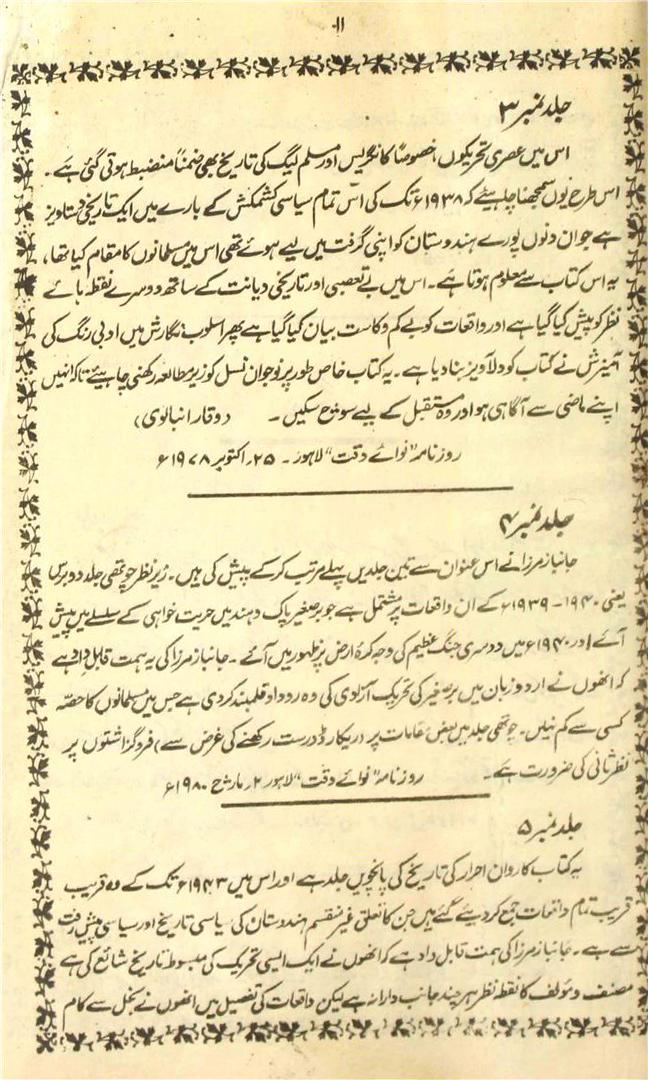 ۱۱
جلد نمبر ۳
اس میں عصری تحریکوں، خصوصاً کانگریس اور مسلم لیگ کی تاریخ بھی ضمناً منضبط ہوتی گئی ہے۔
اس طرح یوں سمجھنا چاہیئے کہ ۱۹۳۸ء تک کی اس تمام سیاسی کشمکش کے بارے میں ایک تاریخی دستاویز
ہے جو ان دنوں پورے ہندوستان کو اپنی گرفت میں لیے ہوئے تھی اس میں مسلمانوں کا مقام کیا تھا،
یہ اس کتاب سے معلوم ہوتا ہے۔ اس میں بے تعصبی اور تاریخی دیانت کے ساتھ دوسرے نقطہ ہائے
نظر کو پیش کیا گیا ہے اور واقعات کو بے کم و کاست بیان کیا گیا ہے پھر اسلوب نگارش میں ادبی رنگ کی
آمیزش نے کتاب کو دلآویز بنا دیا ہے۔ یہ کتاب خاص طور پر نوجوان نسل کو زیر مطالعہ رکھنی چاہیئے تاکہ انہیں
اپنے ماضی سے آگاہی ہو اور وہ مستقبل کے لیے سوچ سکیں۔ (وقار انبالوی)
روزنامہ "نوائے وقت" لاہور۔ ۲۵۔ اکتوبر ۱۹۷۸ء
جلد نمبر ۴
جانباز مرزا نے اس عنوان سے تین جلدیں پہلے مرتب کر کے پیش کی ہیں۔ زیر نظر چوتھی جلد دو برس
یعنی ۱۹۴۰۔۱۹۳۹ء کے ان واقعات پر مشتمل ہے جو برصغیر پاک و ہند میں حریت خواہی کے سلسلے میں پیش
آئے اور ۱۹۴۰ء میں دوسری جنگ عظیم کی وجہ کرۂ ارض پر ظہور میں آئے۔ جانباز مرزا کی یہ ہمت قابل داد ہے
کہ انھوں نے اردو زبان میں برصغیر کی تحریک آزادی کی وہ روداد قلمبند کردی ہے جس میں مسلمانوں کا حصّہ
کسی سے کم نہیں۔ چوتھی جلد میں بعض مقامات پر (ریکارڈ درست رکھنے کی غرض سے) فروگزاشتوں پر
نظر ثانی کی ضرورت ہے۔ روزنامہ "نوائے وقت" لاہور ۲۔ مارچ ۱۹۸۰ء
جلد نمبر ۵
یہ کتاب کاروان احرار کی تاریخ کی پانچویں جلد ہے اور اس میں ۱۹۴۳ء تک کے وہ قریب
قریب تمام واقعات جمع کر دیئے گئے ہیں جن کا تعلق غیر منقسم ہندوستان کی سیاسی تاریخ اور سیاسی پیش رفت
سے ہے۔ جانباز مرزا کی ہمت قابل داد ہے کہ انھوں نے ایک ایسی تحریک کی مبسوط تاریخ شائع کی ہے
مصنف و مؤلف کا نقطہ نظر ہر چند جانب دارانہ ہے لیکن واقعات کی تفصیل میں انھوں نے بخل سے کام